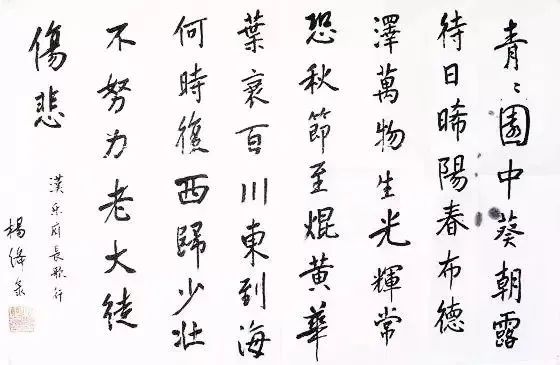 青〻園中葵朝露
待日晞陽春布德
澤萬物生光輝常
恐秋節至焜黄華
葉衰百川東到海
何時復西歸少壮
不努力老大徒
傷悲
漢乐府長歌行
楊绛